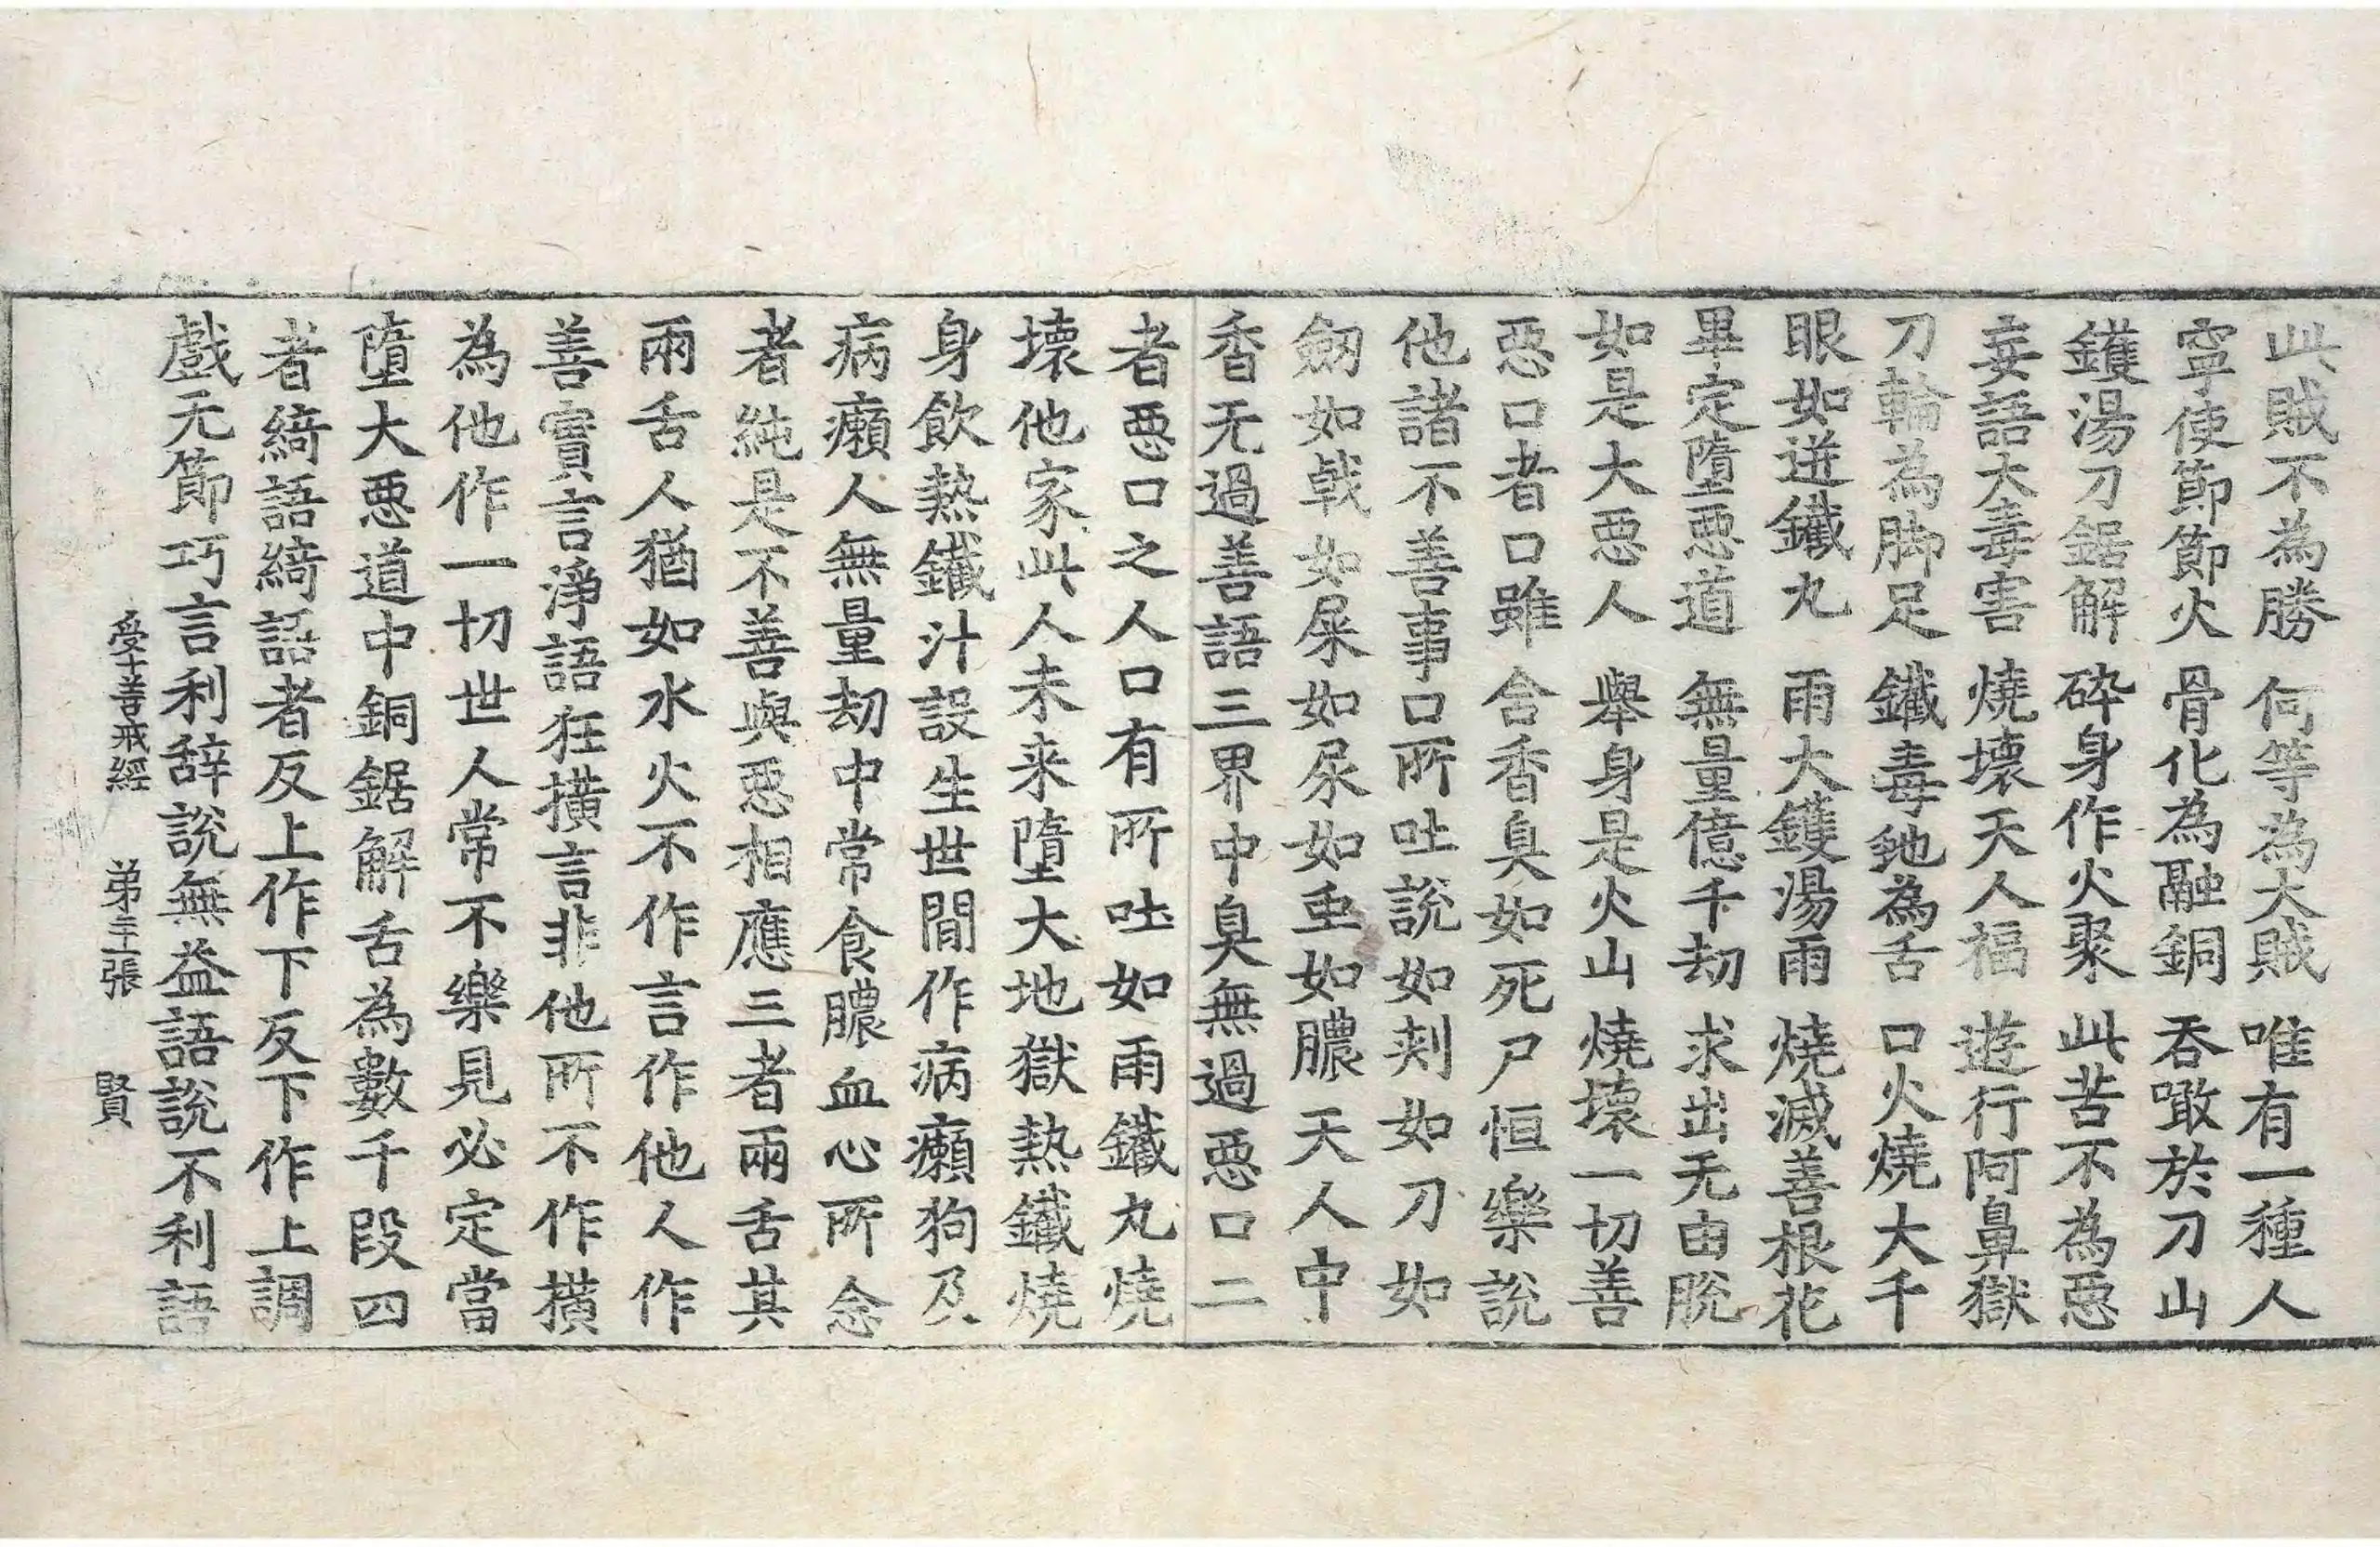 此賊不為勝　何等為大賊　唯有一種人
寧使節節火　骨化為融銅　吞噉於刀山
鑊湯刀鋸解　碎身作火聚　此苦不為惡
妄語大毒害　燒壞天人福　遊行阿鼻獄
刀輪為脚足　鐵毒虵為舌　口火燒大千
眼如迸鐵丸　雨大鑊湯雨　燒滅善根花
畢定墮惡道　無量億千劫　求出无由脫
如是大惡人　舉身是火山　燒壞一切善
惡口者口雖含香臭如死尸恒樂說
他諸不善事口所吐說如刾如刀如
劒如戟如屎如尿如虫如膿天人中
香无過善語三界中臭無過惡口二
者惡口之人口有所吐如雨鐵丸燒
壞他家此人未来墮大地獄熱鐵燒
身飲熱鐵汁設生世間作病癩狗及
病癩人無量劫中常食膿血心所念
者純是不善與惡相應三者兩舌其
兩舌人猶如水火不作言作他人作
善實言淨語狂撗言非他所不作撗
為他作一切世人常不樂見必定當
墮大惡道中銅鋸解舌為數千段四
者綺語綺語者反上作下反下作上調
戲无節巧言利辞說無益語說不利語
受十善戒經　苐三張　賢